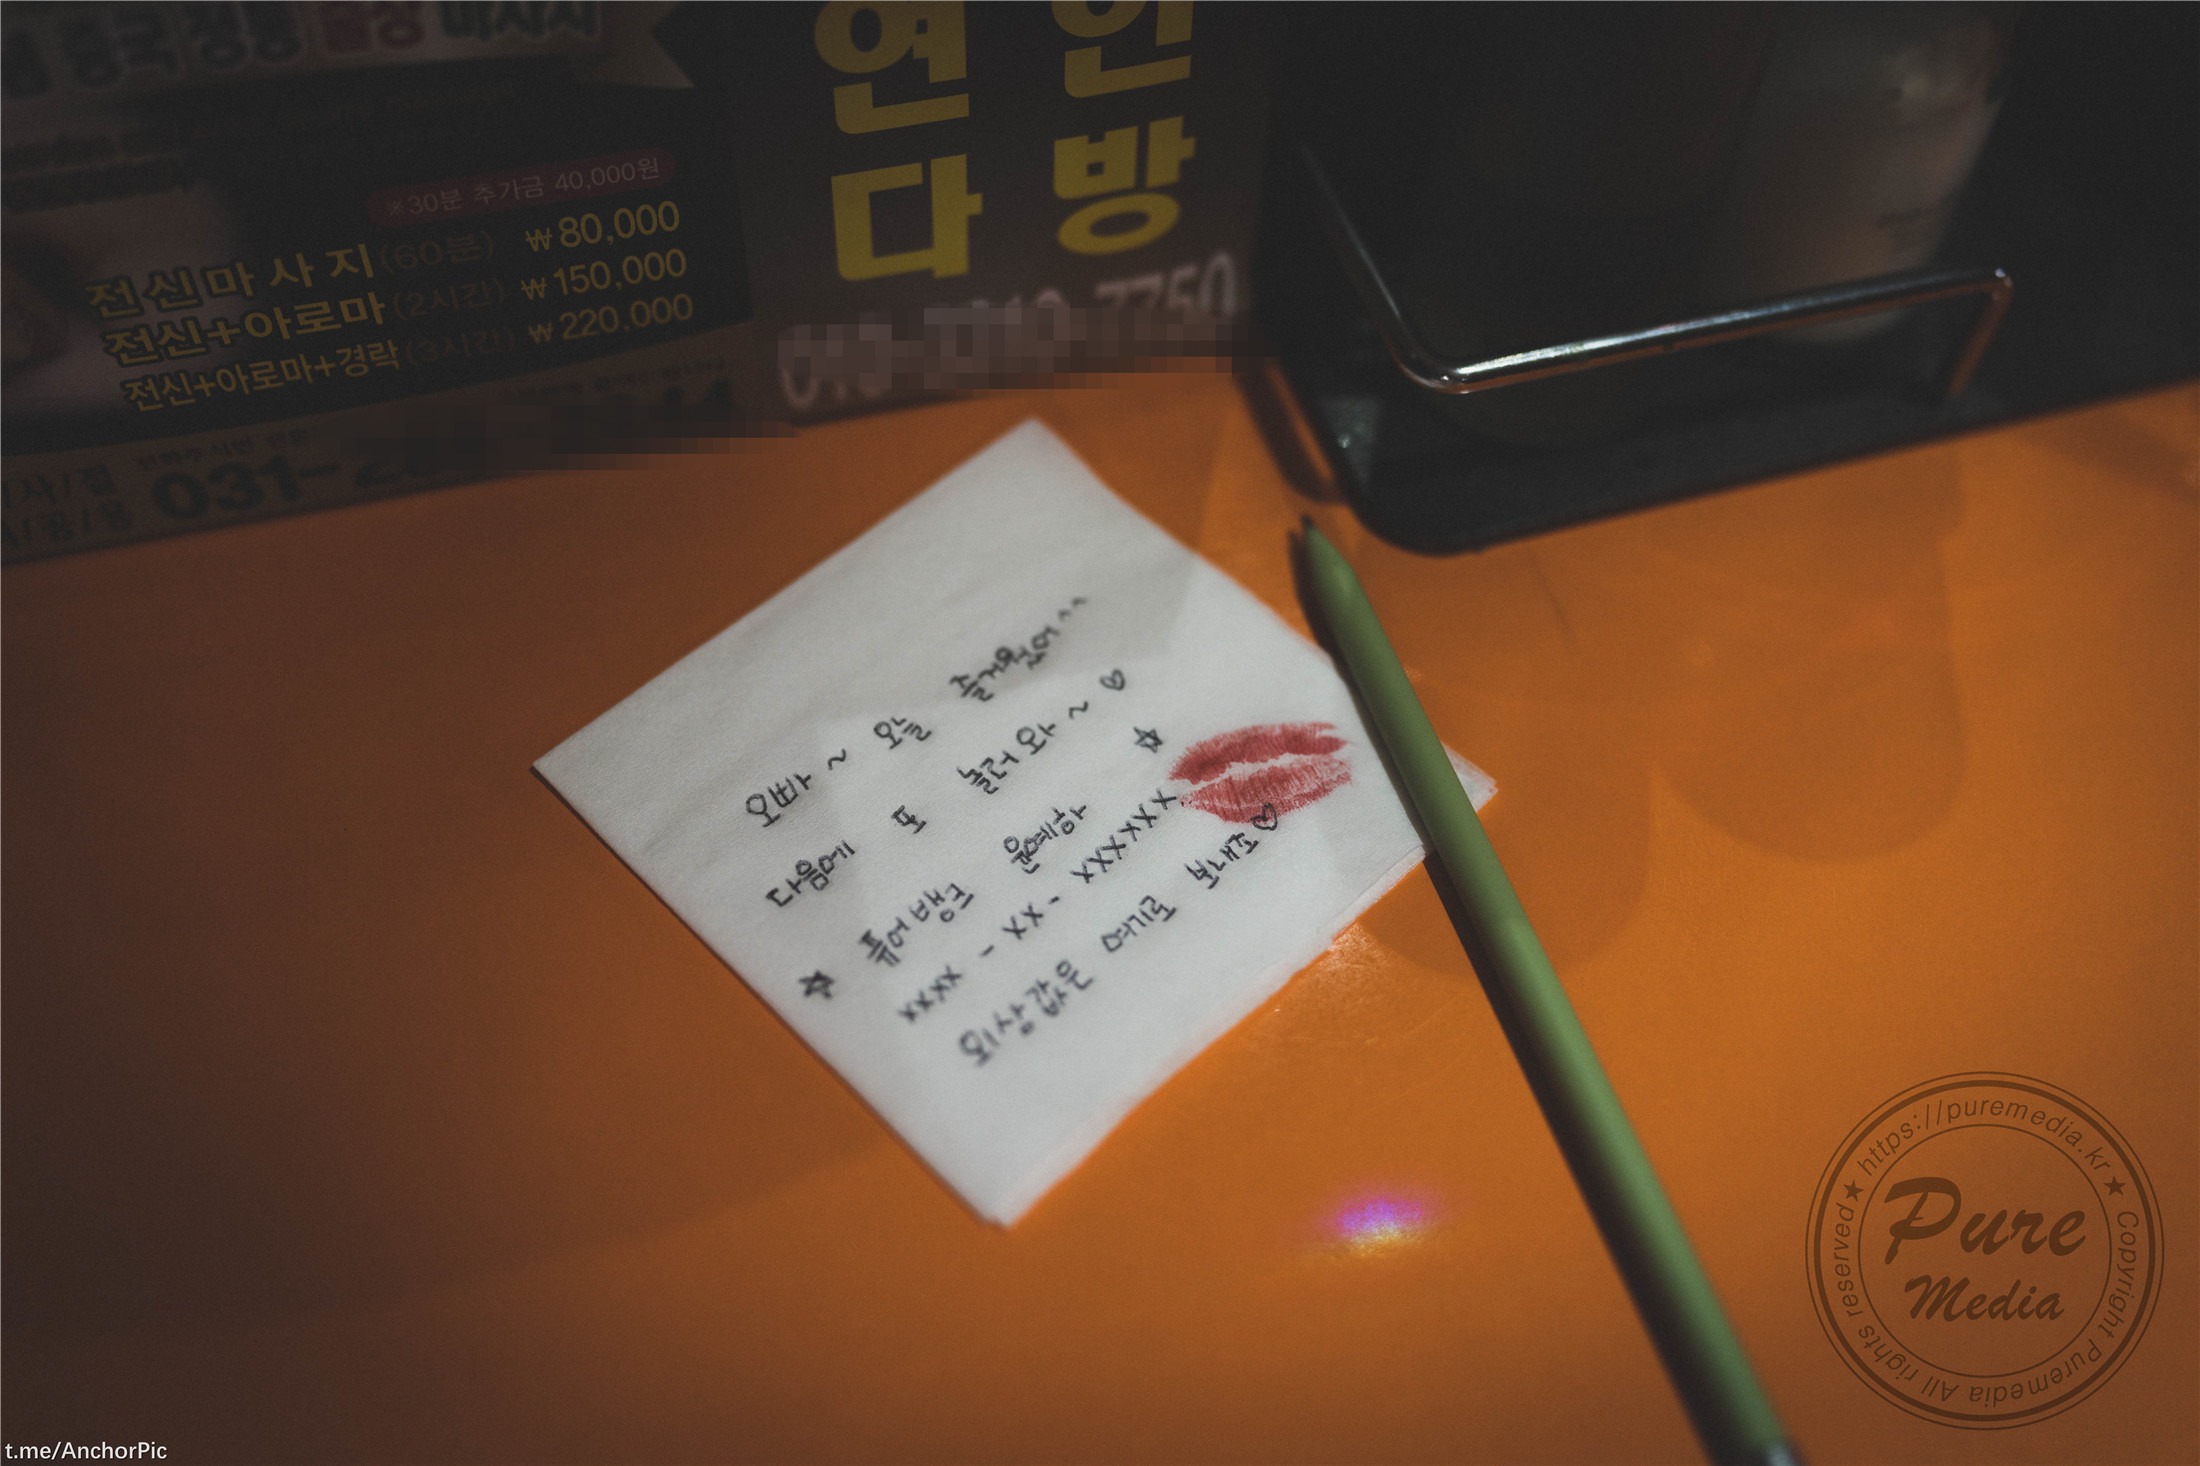 중국정통
마사지
※30분 추가금 40,000원
전신마사지(60분) ₩80,000
전신+아로마(2시간) ₩150,000
전신+아로마+경락(3시간) ₩220,000
031-2
연인
다방
오빠~ 오늘 즐거웠어^^
다음에 또 놀러와~♡
☆ 퓨어뱅크 윤예하 ☆
xxxx - xx - xxxxxx
외상값은 여기로 보내조♡
https://puremedia.kr ★ Copyright Puremedia All rights reserved ★
Pure
Media
t.me/AnchorPic